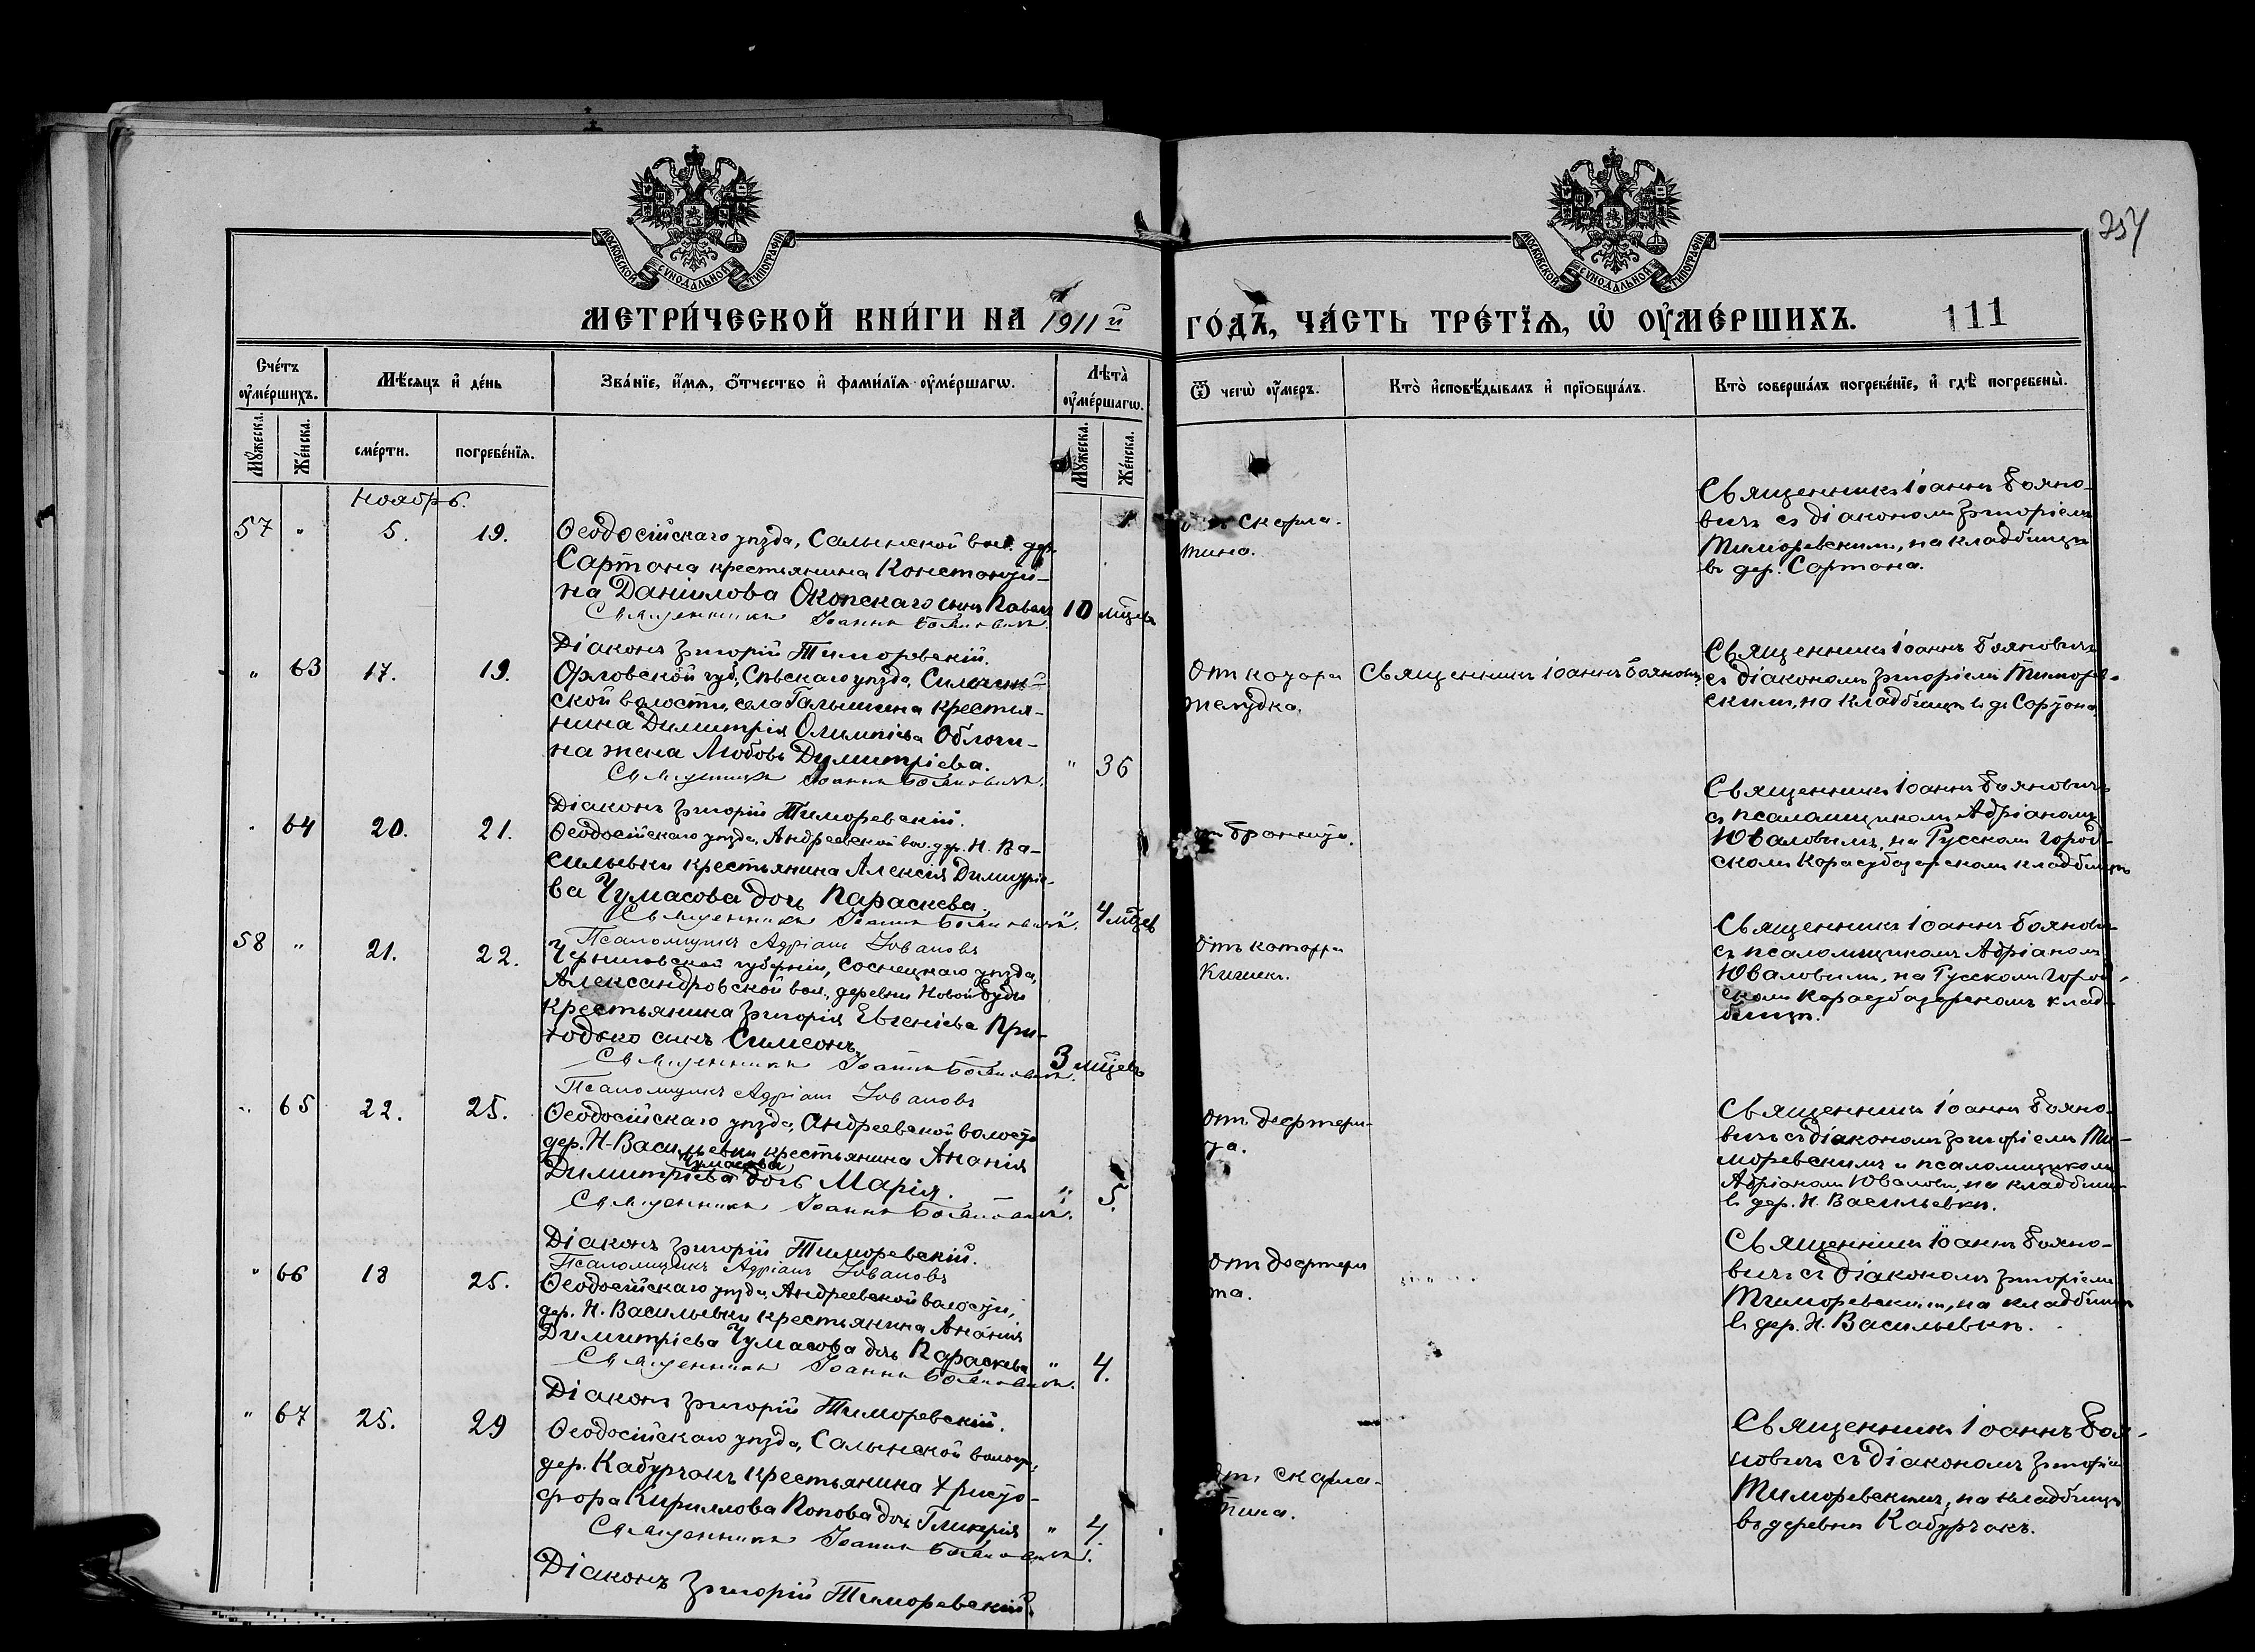 МОСКОВСКОЙ СУНОДАЛЬНОЙ ТИПОГРАФІИ
МОСКОВСКОЙ СУНОДАЛЬНОЙ ТИПОГРАФІИ
257
МЕТРИ́ЧЕСКОЙ КНИ́ГИ НА 1911й ГО́ДЪ, ЧА́СТЬ ТРЕ́ТЇѦ, Ѡ҆ ОУ҆МЕ́РШИХЪ. 111
Сче́тъ оу҆ме́ршихъ.
Мѣ́сяцъ и҆ де́нь
Зва́нїе, и҆́мѧ, ѻ҆́тчество и҆ фами́лїѧ оу҆ме́ршагѡ.
Лѣ́та оу҆ме́ршагѡ.
Ѿ чегѡ̀ оу҆́меръ.
Кто̀ и҆сповѣ́дывалъ и҆ прїѻбща́лъ.
Кто̀ соверша́лъ погребе́нїе, и҆ гдѣ̀ погребены̀.
Мꙋ́жеска.
Же́нска.
сме́рти.
погребе́нїѧ.
Мꙋ́жеска.
Же́нска.
Ноябрь.
57 " 5. 19.
Ѳеодосійскаго уѣзда, Салынской вол. дер.
Сартана крестьянина Константи-
на Даніилова Окопскаго сынъ Павелъ
10 мцевъ
Священникъ Іоаннъ Бояновичъ.
Діаконъ Григорій Тиморевскій.
Скарла-
тина.
Священникъ Іоаннъ Бояно-
вичъ съ діакономъ Григоріемъ
Тиморевскимъ, на кладбищѣ
въ дер. Сартана.
" 63 17. 19.
Орловской губ., Сѣвскаго уѣзда,
ской волости, села Галышина крестья-
нина Димитрія Олимпіева Облоги-
на жена Любовь Димитріева.
" 36
Священникъ Іоаннъ Бояновичъ.
Діаконъ Григорій Тиморевскій.
Отъ катара
желудка.
Священникъ Іоаннъ Бояновичъ
Священникъ Іоаннъ Бояновичъ
съ діакономъ Григоріемъ Тиморев-
скимъ, на кладбищѣ въ д. Сартана
" 64 20. 21.
Ѳеодосійскаго уѣзда, Андреевской вол. дер. Н. Ва-
сильевки крестьянина Алексія Димитріе-
ва Чумасова дочь Параскева.
" 4 мцев
Священникъ Іоаннъ Бояновичъ.
Псаломщикъ Адріанъ Юваловъ
бронхита.
Священникъ Іоаннъ Бояновичъ
съ псаломщикомъ Адріаномъ
Юваловымъ, на Русскомъ город-
скомъ Карасубазарскомъ кладбищѣ
58 " 21. 22.
Черниговской губерніи, Сосницкаго уѣзда,
Александровской вол., деревни Новой Буды
крестьянина Григорія Евгеніева При-
ходько сынъ Симеонъ.
3 мцевъ
Священникъ Іоаннъ Бояновичъ.
Псаломщикъ Адріанъ Юваловъ
Отъ катарра
кишекъ.
Священникъ Іоаннъ Боянови-
съ псаломщикомъ Адріаномъ
Юваловымъ, на Русскомъ город-
скомъ Карасубазарскомъ клад-
бищѣ.
" 65 22. 25.
Ѳеодосійскаго уѣзда, Андреевской волости
дер. Н-Васильевки крестьянина Ананія
Димитріева Чумасова дочь Марія.
" 5.
Священникъ Іоаннъ Бояновичъ.
Діаконъ Григорій Тиморевскій.
Псаломщикъ Адріанъ Юваловъ
Отъ дефтери-
та.
Священникъ Іоаннъ Бояно-
вичъ съ діакономъ Григоріемъ Ти-
моревскимъ и псаломщикомъ
Адріаномъ Юваловымъ, на кладбищѣ
въ дер. Н. Васильевкѣ.
" 66 18 25.
Ѳеодосійскаго уѣзда, Андреевской волости,
дер. Н. Васильевки крестьянина Ананія
Димитріева Чумасова дочь Параскева
" 4.
Священникъ Іоаннъ Бояновичъ.
Діаконъ Григорій Тиморевскій.
Отъ дефтери
та.
Священникъ Іоаннъ Бояно-
вичъ съ діакономъ Григоріемъ
Тиморевскимъ, на кладбищѣ
въ дер. Н. Васильевкѣ.
" 67 25. 29
Ѳеодосійскаго уѣзда, Салынской волости,
дер. Кабурчакъ крестьянина Христо-
фора Кириллова Попова дочь Гликерія
" 4.
Священникъ Іоаннъ Бояновичъ.
Діаконъ Григорій Тиморевскій.
Отъ скарла-
тина.
Священникъ Іоаннъ Боя-
новичъ съ діакономъ Григоріе
Тиморевскимъ, на кладбищѣ
въ деревнѣ Кабурчакъ.